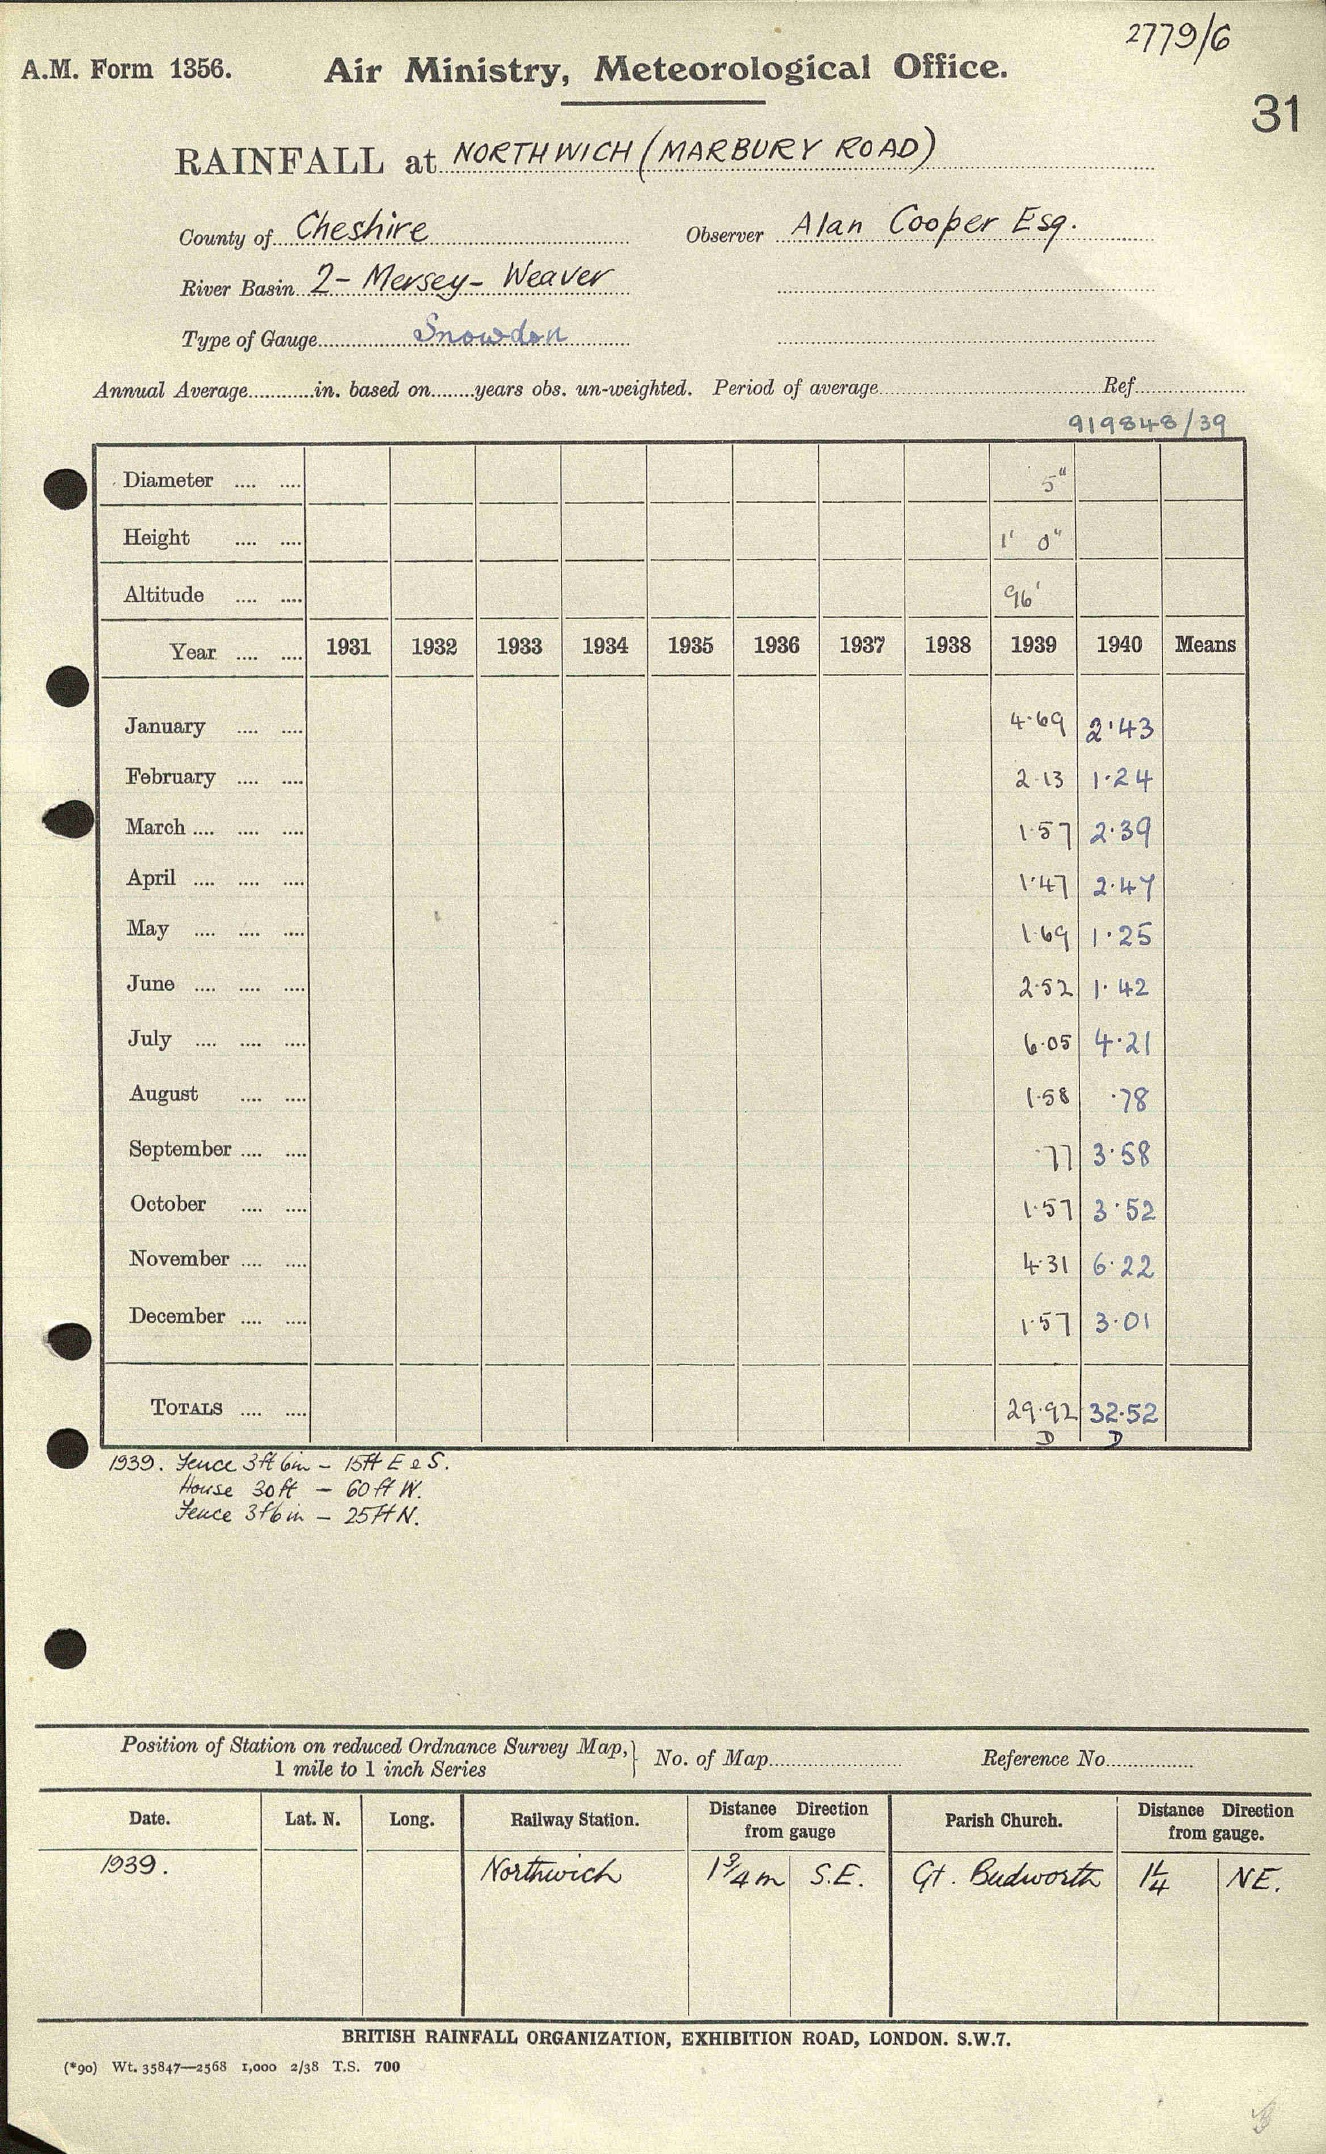 2779/6
A.M. Form 1356. Air Ministry, Meteorological Office.
31
RAINFALL at NORTHWICH (MARBURY ROAD)
County of Cheshire Observer Alan Cooper Esq.
River Basin 2- Mersey- Weaver
Type of Gauge Snowdon
Annual Average............in. based on........years obs. un-weighted. Period of average............Ref............
919848/39
Diameter .... .... 5"
Height .... .... 1' 0"
Altitude .... .... 96'
Year .... .... 1931 1932 1933 1934 1935 1936 1937 1938 1939 1940 Means
January .... .... 4.69 2.43
February .... .... 2.13 1.24
March .... .... .... 1.57 2.39
April .... .... .... 1.47 2.47
May .... .... .... 1.69 1.25
June .... .... .... 2.52 1.42
July .... .... .... 6.05 4.21
August .... .... 1.58 .78
September .... .... .77 3.58
October .... .... 1.57 3.52
November .... .... 4.31 6.22
December .... .... 1.57 3.01
TOTALS .... .... 29.92 32.52
D D
1939. Fence 3ft 6in - 15ft E & S.
House 30ft - 60ft W.
Fence 3f6in - 25ft N.
Position of Station on reduced Ordnance Survey Map, } No. of Map............ Reference No............
1 mile to 1 inch Series
Date. Lat. N. Long. Railway Station. Distance Direction from gauge Parish Church. Distance Direction from gauge.
1939. Northwich 1 3/4 m S.E. Gt. Budworth 1 1/4 NE.
BRITISH RAINFALL ORGANIZATION, EXHIBITION ROAD, LONDON. S.W.7.
(*90) Wt. 35847—2568 1,000 2/38 T.S. 700